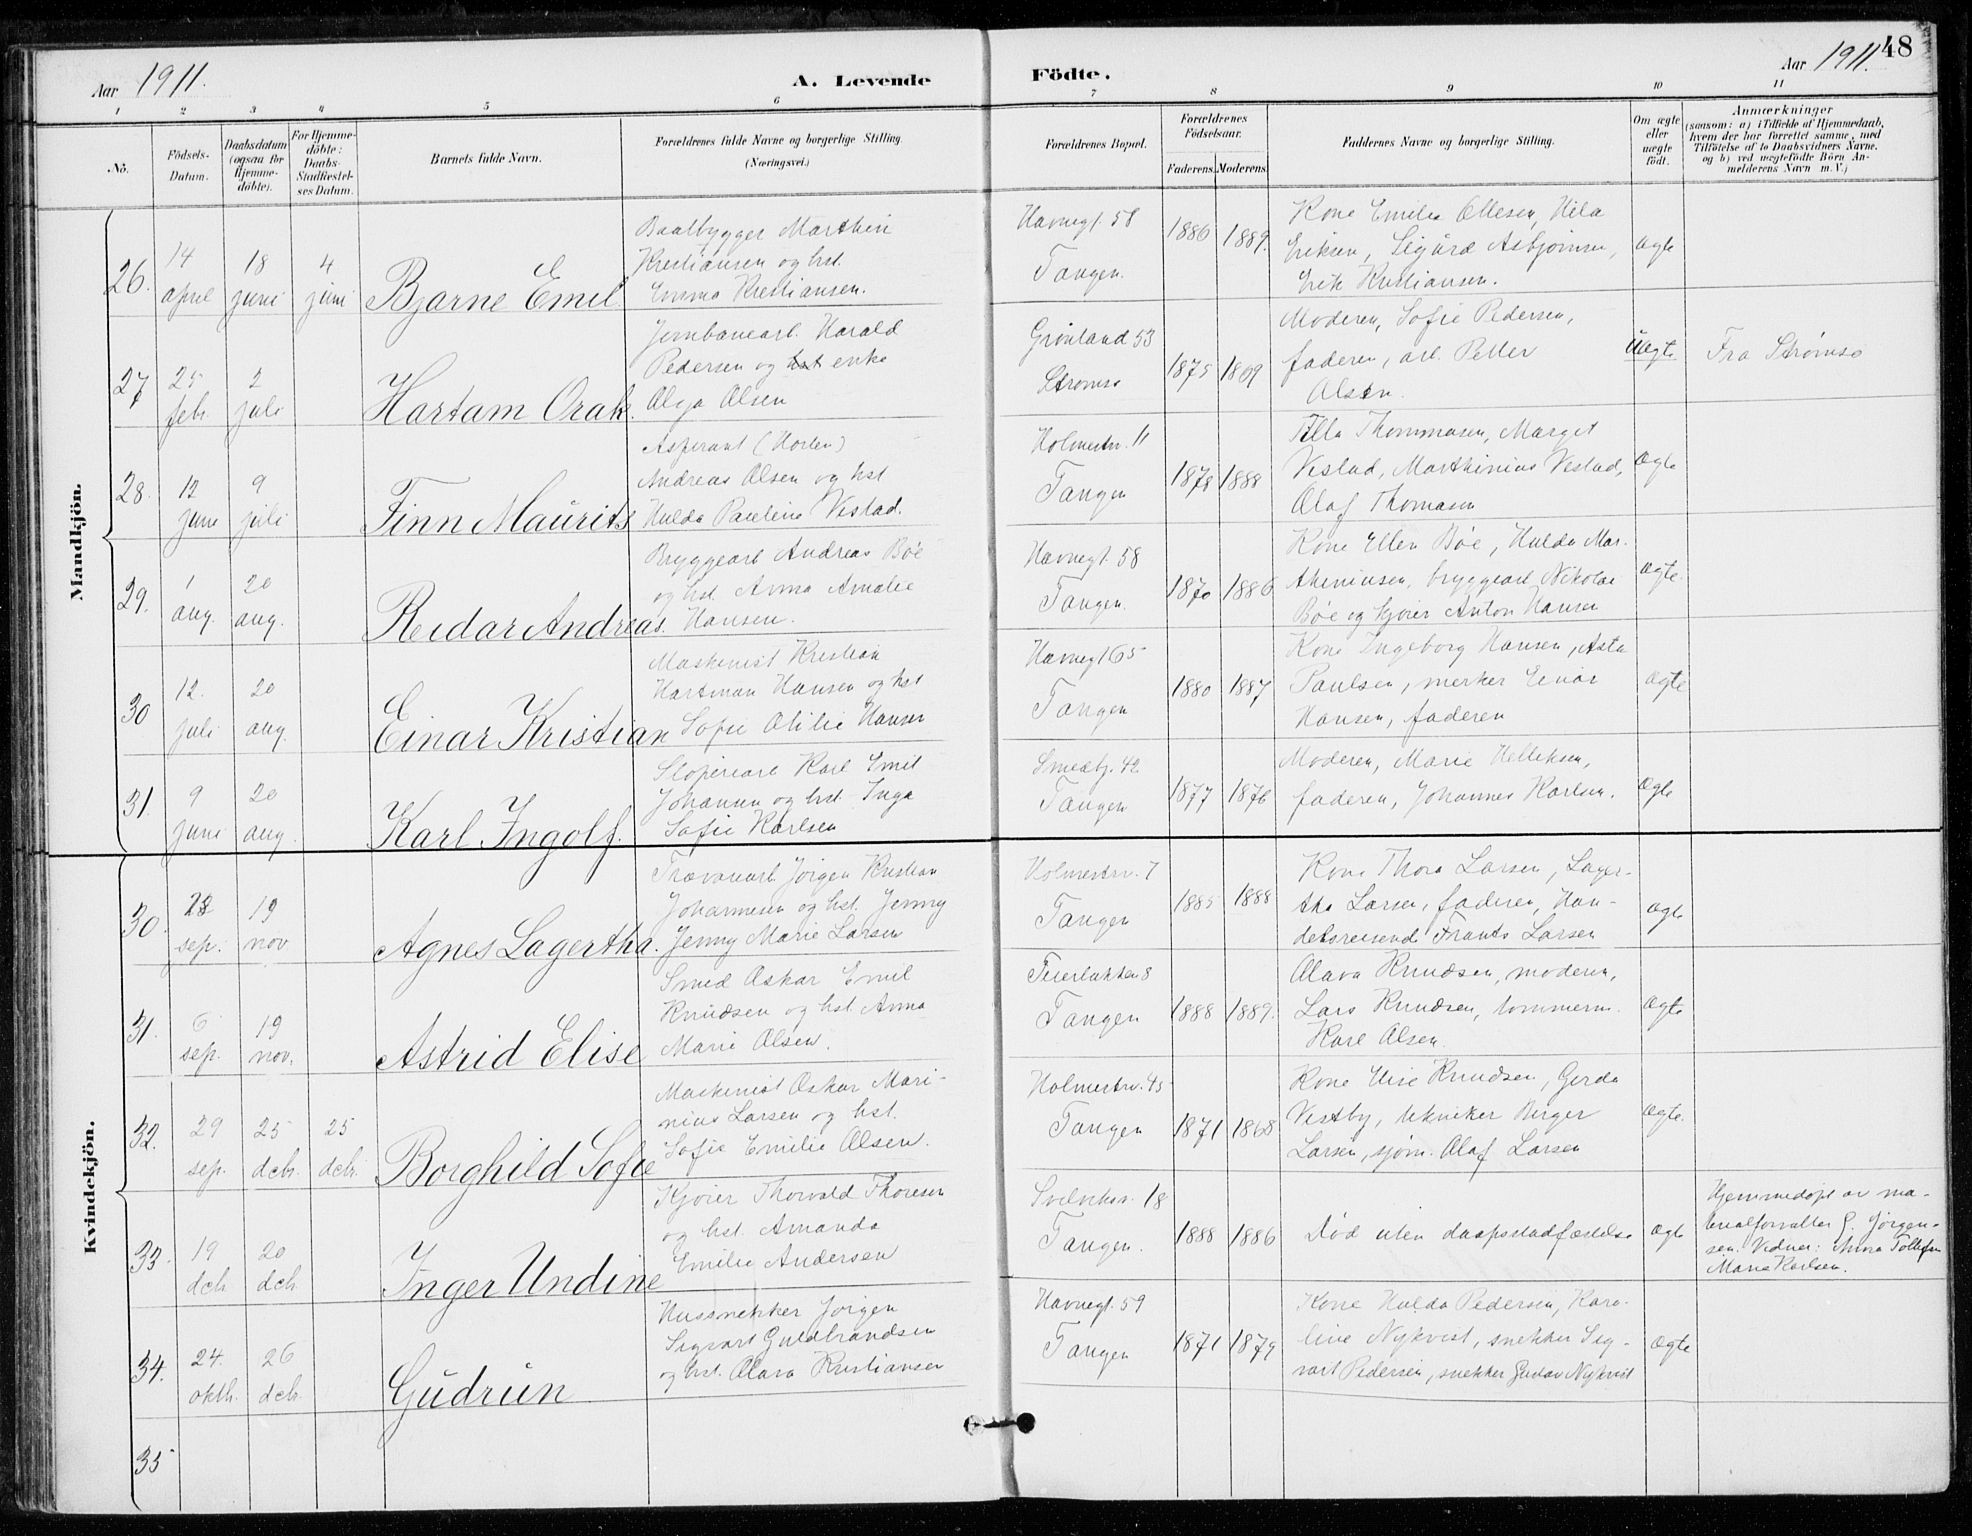 Aar 1911.
A. Levende
Födte.
Aar 1911.
48
1 2 3 4 5 6 7 8 9 10 11
No.
Födsels-
Datum.
Daabsdatum
(ogsaa for
Hjemme-
döbte).
For Hjemme-
döbte:
Daabs-
Stadfæstel-
ses Datum.
Barnets fulde Navn.
Forældrenes fulde Navne og borgerlige Stilling.
(Næringsvei.)
Forældrenes Bopæl.
Forældrenes
Födselsaar.
Faderens. Moderens.
Faddernes Navne og borgerlige Stilling.
Om ægte
eller
uægte
födt.
Anmærkninger
(saasom: a) i Tilfælde af Hjemmedaab,
hvem der har forrettet samme, med
Tilföielse af to Daabsvidners Navne,
og b) ved uægtefödte Börn An-
melderens Navn m. V.)
Mandkjön.
26. 14 april 18 juni 4 juni
Bjarne Emil
Baatbygger Marthin
Kristiansen og hst.
Emma Kristiansen.
Havnegt. 58
Tangen.
1886 1889.
Kone Emilie Ellesen, Hila
Eriksen, Sigurd Asbjørnsen,
Erik Kristiansen.
Ægte
27 25 feb. 2 juli
Hartam Orak.
Jernbanearb. Harald
Pedersen og hst enke
Olga Olsen
Grønland 53
Strømsø
1875 1869
Moderen, Sofie Pedersen,
faderen, arb. Petter
Olsen.
Uægte
Fra Strømsø
28. 12 juni 9 juli
Finn Maurits
Aspirant (Horten)
Andreas Olsen og hst
Hulda Pauline Vestad.
Holmestrv. 11
Tangen
1878 1888
Tilla Thommasen, Marget
Vestad, Marthinius Vestad,
Olaf Thomasen
Ægte
29. 1 aug. 20 aug.
Reidar Andreas.
Bryggearb Andreas Bøe
og hst. Anna Amalie
Hansen.
Havnegt. 58
Tangen.
1870 1886
Kone Ellen Bøe, Hulda Mar-
theninsen, bryggearb. Nikolai
Bøe og kjører Anton Hansen
Ægte.
30 12. juli 20 aug.
Einar Kristian
Maskinist Kristian
Hartman Hansen og hst
Sofie Otilie Hansen
Havnegt 65
Tangen
1880 1887
Kone Ingeborg Hansen, Asta
Paulsen, merker Einar
Hansen, faderen
Ægte
31. 9 juni 20 aug.
Karl Ingolf.
Sloperearb Karl Emil
Johansen og hst. Inga
Sofie Karlsen
Smedbj. 42
Tangen
1877 1876
Moderen, Marie Helleksen,
faderen, Johannes Karlsen.
Ægte
Kvindekjön.
30. 28 sep. 19 nov
Agnes Lagertha.
Trævarearb. Jörgen Kristian
Johannesen og hst. Jenny
Jenny Marie Larsen
Holmestrv. 7
Tangen
1885 1888
Kone Thora Larsen, Lager-
tha Larsen, faderen, Han-
delsreisend Frants Larsen
Ægte
31. 6 sep. 19 nov.
Astrid Elise
Smed Oskar Emil
Knudsen og hst Anna
Marie Olsen.
Feierbakken 8
Tangen
1888 1889.
Olava Knudsen, moderen,
Lars Knudsen, tømmerm.
Kare Olsen.
Ægte
32. 29 sep. 25 debr. 25 debr.
Borghild Sofie
Maskinist Oskar Mari-
nius Larsen og hst.
Sofie Emilie Olsen.
Holmestrv. 45
Tangen
1871 1868
Kone Elise Knudsen, Gerda
Vestby, tekniker Birger
Larsen, sjøm. Olaf Larsen
Ægte.
33. 19 deb. 20 deb.
Inger Undine
Kjører Thorvald Thoresen
og hst. Amanda
Emilie Andersen
Svelviksv. 18
Tangen.
1888 1886
Død uten daapsstadfæstelse
Ægte
Hjemmedøpt av ma-
terialforvalter G. Jørgen-
sen. Vidner: Anna Tollefsen
Marie Karlsen.
34. 24. oktb. 26 deb.
Gudrun
Hussnekker Jørgen
Sigvart Guldbrandsen
og hst. Olava Kristiansen
Havnegt. 59
Tangen
1871 1879
Kone Hulda Pedersen, Karo-
line Nykvist, snekker Sig-
vart Pedersen, snekker Gustav Nykvist
Ægte
35